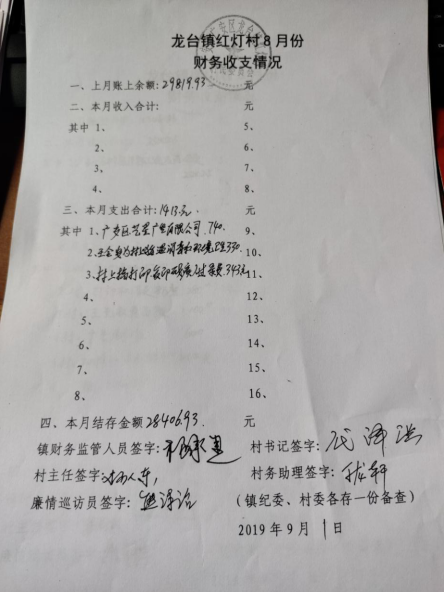 龙台镇红灯村8月份
财务收支情况
一、上月账上余额:29819.93 元
二、本月收入合计: 元
其中 1、 5、
2、 6、
3、 7、
4、 8、
三、本月支出合计:1413元. 元
其中 1、广安区艺星广告有限公司.740. 9、
2、 330. 10、
3、村上 打印复印 费.343元 11、
4、 12、
5、 13、
6、 14、
7、 15、
8、 16、
四、本月结存金额28406.93. 元
镇财务监管人员签字: 村书记签字:
村主任签字: 村务助理签字:
廉情巡访员签字: (镇纪委、村委各存一份备查)
2019年9月1日